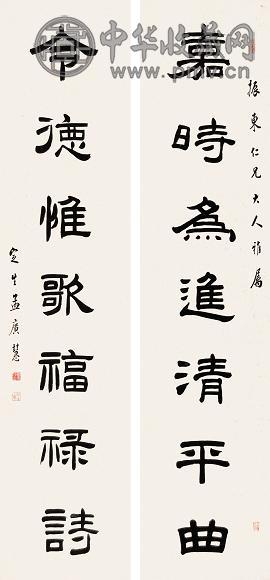 中华收藏网
www.pmv.cn
振東仁兄大人雅屬
嘉時為進清平曲
令德惟歌福禄詩
定生孟廣慧